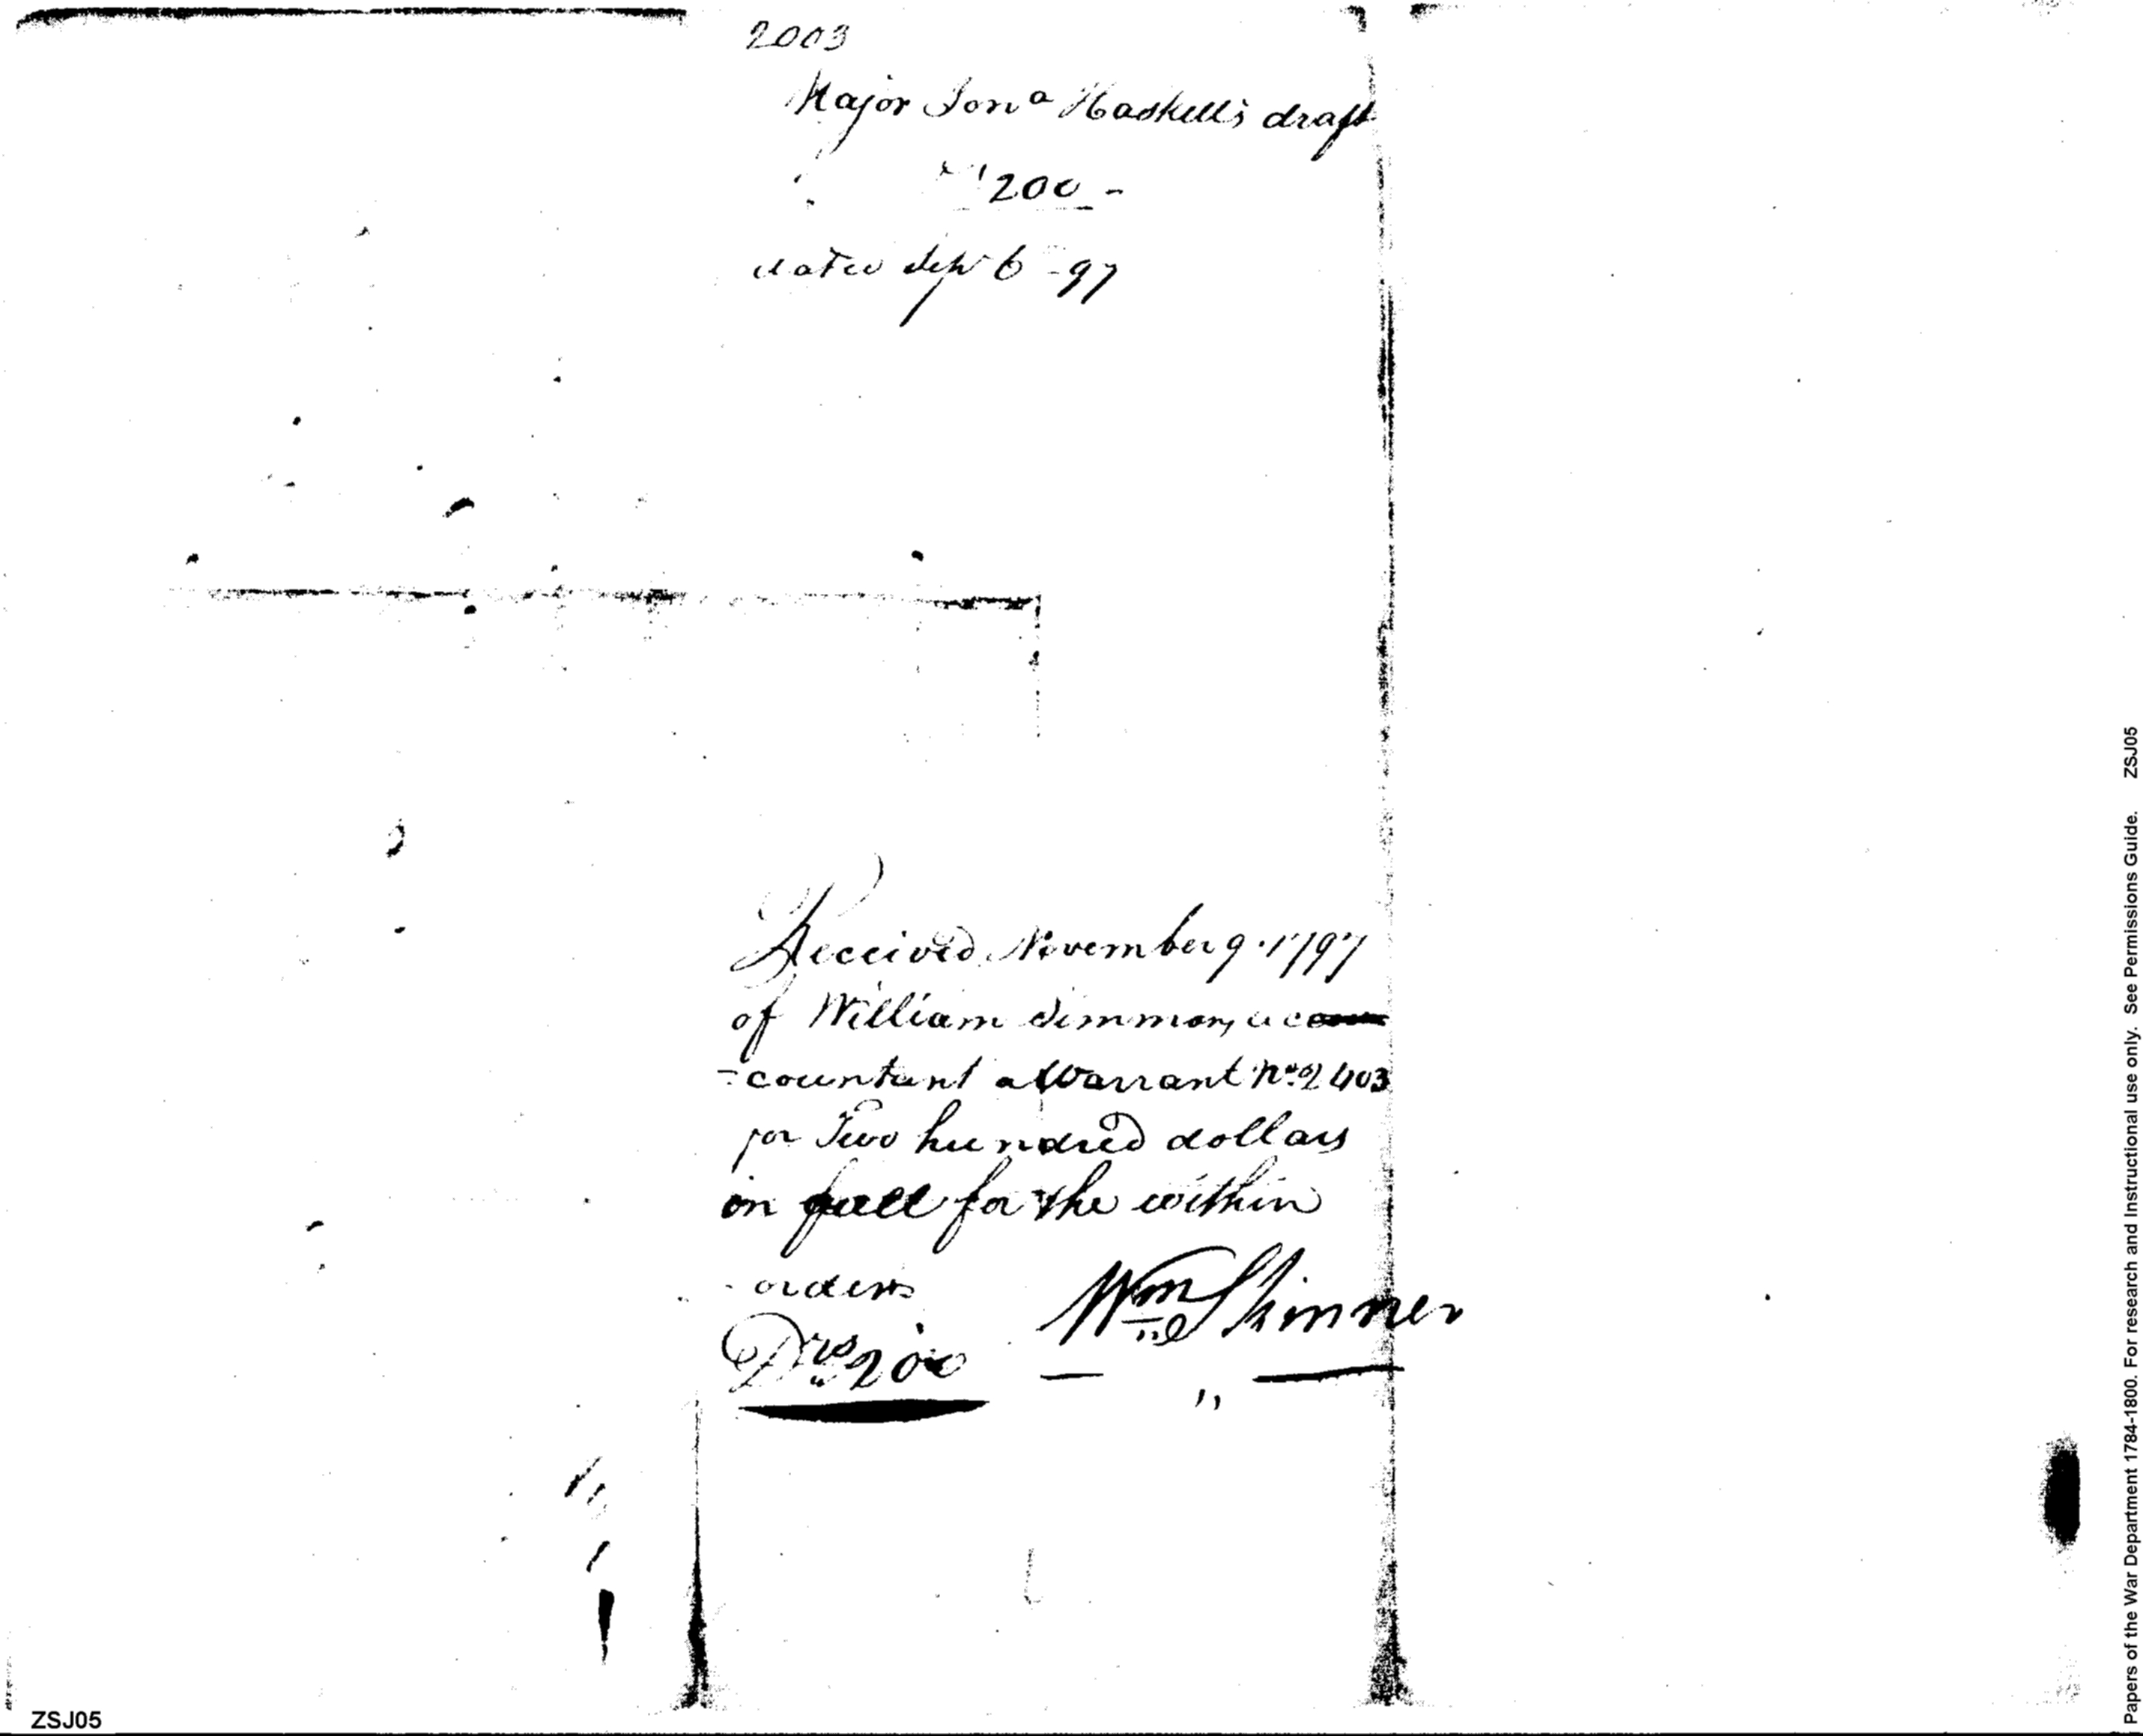 2003
Major Jona Haskell's draft
200 -
dated Sepr 6 - 97
Received November 9. 1797
of William Simmons acc
-countant a Warrant No 2403
for Two hundred dollars
in full for the within
orders
Wm Skinner
Drs 200
ZSJ05
Papers of the War Department 1784-1800. For research and Instructional use only. See Permissions Guide. ZSJ05